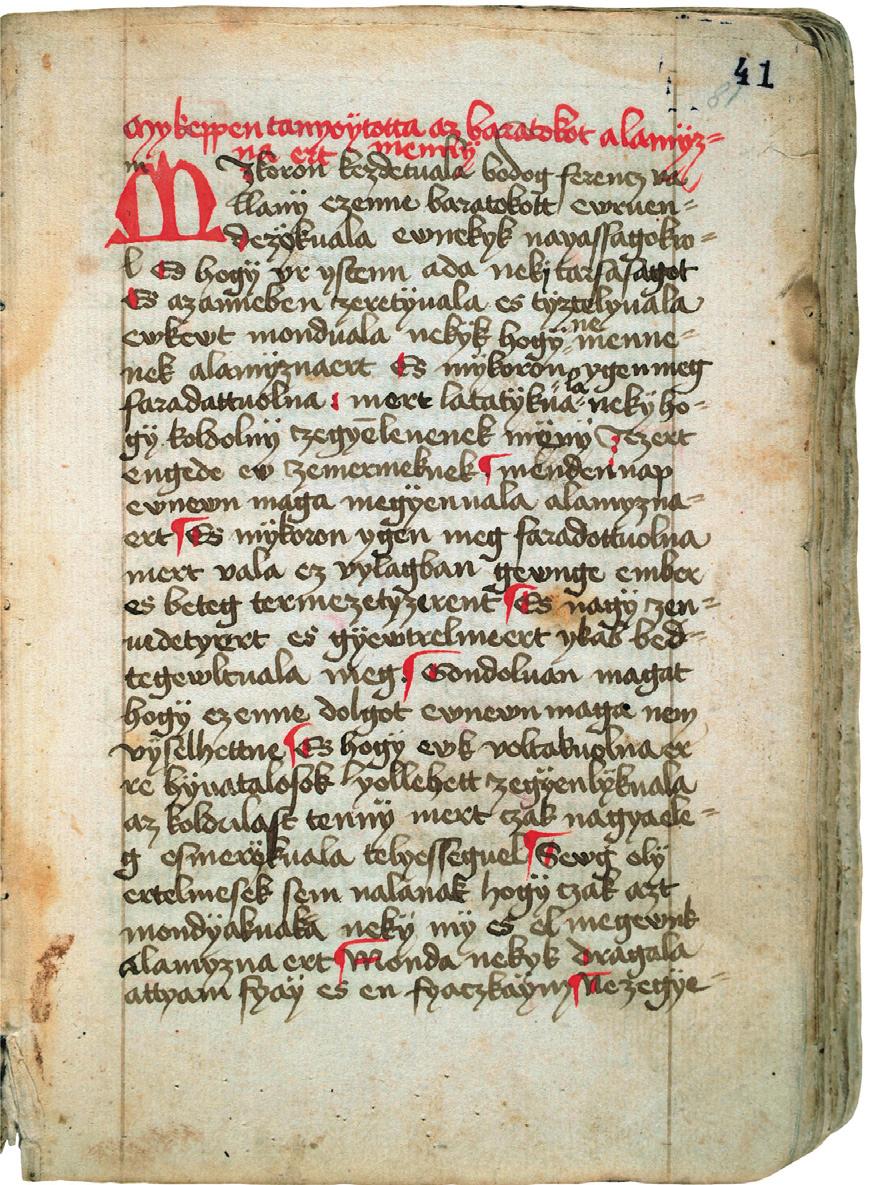 41
mykeppen tanoÿtotta az baratokot alamÿz=
na ert mennÿ
m
MJkoron kezdetuala bodog ferencz va
llanÿ ezenne baratokott ewruen=
dezÿkuala ewnekyk nayassagokro=
l Es hogÿ vr ystenn ada nekj tarsasagot
Es azanneben zeretÿuala es tÿztelyuala
ewkewt monduala nekÿk hogÿ ne menne=
nek alamÿznaert Es mÿkoron ygen meg
faradattuolna mert latatÿkuala neky ho=
gÿ koldolnÿ czegyēlenenek menny Jezert
engede ew zemermeknek menden nap
ewnewn maga megyenuala alamyzna=
ert Es mÿkoron ygen meg faradottuolna
mert vala ez vylagban gewnge ember
es beteg termezetÿzerent Es nagÿ zen=
uedetyert es gÿewtrelmeert ykab bed=
tegewltuala meg Gondoluan magat
hogÿ ezenne dolgot ewnewn maga nem
vÿselhettne Es hogÿ ewk voltakuolna er
re hÿuatalosok yollehett zegÿenlÿkuala
az koldulast tennÿ mert czak nagyaele=
g esmerÿkuala telyesseguel Sewg olÿ
ertelmesek sem valanak hogÿ czak azt
mondÿakuala nekÿ mÿ es el megewnk
alamyzna ert Monda nekyk dragala
attyam fyaÿ es en fyaczkaÿm Ne zegÿe=